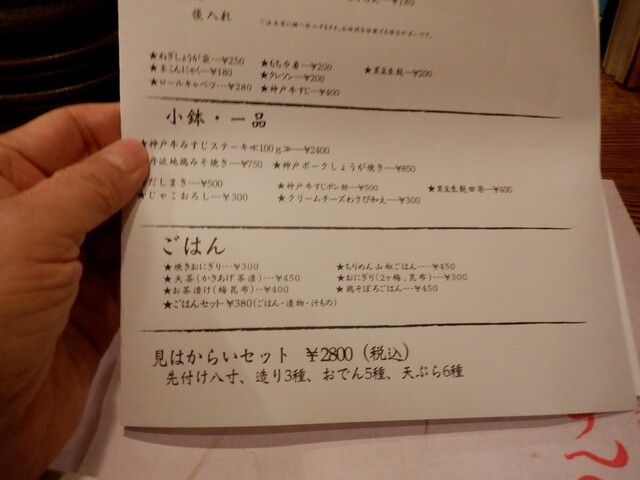 ¥780
後入れ
★ねぎしょうが袋…¥250 ★もち巾着…¥200 ★黒豆生麩…¥200
★糸こんにゃく…¥180 ★クレソン…¥200
★ロールキャベツ…¥280 ★神戸牛すじ…¥400
小鉢・一品
★神戸牛みすじステーキ≪100g≫…¥2400
丹波地鶏みそ焼き…¥750 ★神戸ポークしょうが焼き…¥850
★だしまき…¥500 ★神戸牛すじポン酢…¥500 ★黒豆生麩田楽…¥400
★じゃこおろし…¥300 ★クリームチーズわさび和え…¥300
ごはん
★焼きおにぎり…¥300 ★ちりめん山椒ごはん…¥450
★天茶(かきあげ茶漬)…¥450 ★おにぎり(2ヶ梅、昆布)…¥300
★お茶漬け(梅昆布)…¥400 ★鶏そぼろごはん…¥450
★ごはんセット¥380(ごはん・漬物・汁もの)
見はからいセット ¥2800(税込)
先付け八寸、造り3種、おでん5種、天ぷら6種